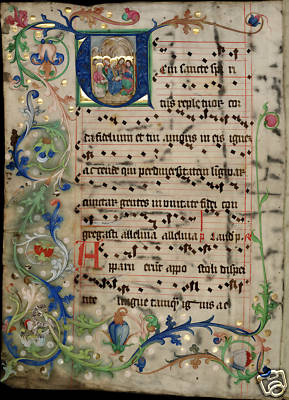 Veni sancte spiri
tus reple tuor cor
da fidelium et tui amoris in eis igne
accende qui per diversitatem linguar
cunctar gentes in unitate fidei con
gregasti alleluia alleluia
Apparu erut apo stolis disper
tite lingue tamq ignis ae